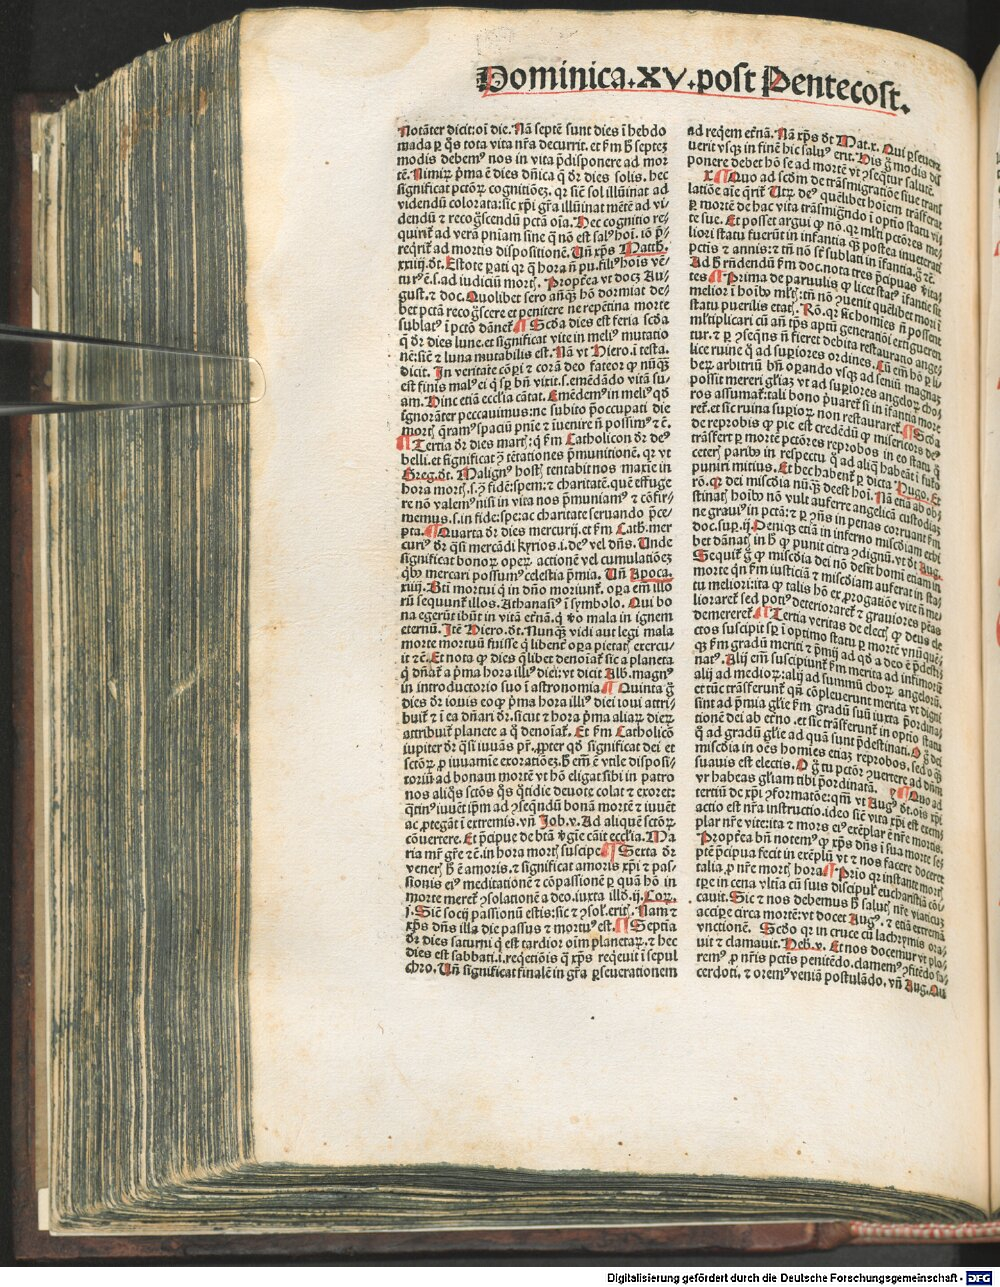 Dominica.XV.post Pentecost.
Notāter dicit:oī die. Nā septē sunt dies ī hebdo
mada ꝑ q̄s tota vita nr̄a decurrit. et ẜm hꝰ septeʒ
modis debemꝰ nos in vita p̄disponere ad mor
tē. Nimiꝝ p̄ma ē dies dn̄ica q̄ dr̄ dies solis. hec
significat pctōꝝ cognitiōeʒ. qꝛ sic̄ sol illūinat ad
videndū colorata: sic̄ xp̄i gr̄a illūinat mētē ad vi
dendū ⁊ recogscendū pctā oīa. Hec cognitio re⸗
quirit̉ ad verā pniam sine q̄ nō est salꝰ hoī. iō p̄⸗
reqrit̉ ad mortis dispositionē. Un̄ xp̄s Matth.
xxiiij. dt. Estote ꝑati qꝛ q̄ hora n̄ pu. filiꝰ hoīs vē⸗
turꝰ ē. s. ad iudiciū mort̄. Propt̄ea vt docʒ Au⸗
gust. ⁊ doc. Quolibet sero añq̄ꝫ hō dormiat de⸗
bet pctā recogscere et penitere ne repētina morte
sublatꝰ ī pctō dānet̉. ¶ Scd̄a dies est feria scd̄a
q̄ dr̄ dies lune. et significat vite in meliꝰ mutatio
nē: sic̄ ⁊ luna mutabilis est. Nā vt Hiero. ī testa.
dicit. In veritate cōꝑi ⁊ corā deo fateor ꝙ nūqꝫ
est finis malꝰ ei q̄ sꝑ bn̄ vixit. s. emēdādo vitā su⸗
am. Hinc etiā ecclīa cātat. Emēdemꝰ in meliꝰ qd̄
ignorāter peccauimus: ne subito p̄occupati die
mort̄ q̄ramꝰ spaciū pnīe ⁊ īuenire n̄ possimꝰ ⁊c̄.
¶ Tertia dr̄ dies mart̄: q̄ ẜm Catholicon dr̄ deꝰ
belli. et significat ꝯ̄ tētationes p̄munitionē. qꝛ vt
Greg. dt. Malignꝰ host̄ tentabit nos maxie in
hora mort̄. s. ꝯ̄ fidē: spem: ⁊ charitatē. quē effuge
re nō valemꝰ nisi in vita nos p̄muniamꝰ ⁊ cōfir⸗
memus. s. in fide: spe: ac charitate seruando p̄ce⸗
pta. ¶ Quarta dr̄ dies mercurij. et ẜm Cath. mer
curiꝰ dr̄ qsi mercādi kyrios. i. deꝰ vel dn̄s. Unde
significat bonoꝝ opeꝝ actionē vel cumulatiōeʒ
qbꝰ mercari possumꝰ celestia p̄mia. Un̄ Apoca.
xiiij. Bt̄i mortui q̄ in dn̄o moriunt̉. oꝑa em̄ illo
rū sequunt̉ illos. Athanasiꝰ ī symbolo. Qui bo
na egerūt ibūt in vitā etn̄ā. q̄ v̄o mala in ignem
eternū. Itē Hiero. dt. Nunqꝫ vidi aut legi mala
morte mortuū fuisse q̄ libent̉ oꝑa pietat̄ exercu⸗
it ⁊c̄. Et nota ꝙ dies q̄libet denoīat̉ sic̄ a planeta
q̄ dn̄at̉ a p̄ma hora illiꝰ diei: vt dicit Alb. magnꝰ
in introductorio suo ī astronomia. ¶ Quinta ḡ
dies dr̄ iouis eo ꝙ p̄ma hora illiꝰ diei ioui attri⸗
buit̉ ⁊ ī ea dn̄ari dr̄. sicut ⁊ hora p̄ma aliaꝝ dieꝝ
attribuit̉ planete a q̄ denoīat̉. Et ẜm Catholicō
iupiter dr̄ qsi iuuās pr̄. ꝓpter qd̄ significat dei et
sctōꝝ ꝑ iuuamīe exoratiōeʒ. hꝰ em̄ ē vtile disposi⸗
toriū ad bonam mortē vt hō eligat sibi in patro
nos aliq̄s sctōs q̄s q̄tidie deuote colat ⁊ exoret:
q̄tinꝰ iuuēt ip̄m ad ꝯseq̄ndū bonā mortē ⁊ iuuēt
ac ꝓtegāt ī extremis. vn̄ Job. v. Ad aliquē sctōꝝ
cōuertere. Et p̄cipue de btā v̄gīe cāit ecclīa. Ma
ria mr̄ gr̄e ⁊c̄. in hora mort̄ suscipe. ¶ Sexta dr̄
vener̄ hꝰ ē amoris. ⁊ significat amoris xp̄i ⁊ pas⸗
sionis eiꝰ meditationē ⁊ cōpassionē ꝑ quā hō in
morte meret̉ ꝯsolationē a deo. iuxta illd̄. ij. Coꝝ.
j. Sic̄ socij passionū estis: sic ⁊ ꝯsol. erit̄. Nam ⁊
xp̄s dn̄s illa die passus ⁊ mortuꝰ est. ¶ Septīa
dr̄ dies saturni q̄ est tardior oīm planetaꝝ. ⁊ hec
dies est sabbati. i. reqetiōis q̄ xp̄s reqeuit ī sepul
chro. Un̄ significat finalē in gr̄a ꝑseuerationem
ad reqem etn̄ā. Nā xp̄s dt Mat. x. Qui ꝑseuera
uerit vsqꝫ in finē hic saluꝰ erit. His ḡ modis dis
ponere debet hō se ad mortē vt ꝯseqt̉ salutē.
x. ¶ Quo ad scd̄m de trāsmigratiōe siue trans
latiōe aīe q̄rit̉ Utꝝ deꝰ quēlibet hoīem trāsferat
ꝑ mortē de hac vita trāsmigrādo ī optīo statu vi
te sue. Et posset argui ꝙ nō. qꝛ ml̄ti pctōres me⸗
liori statu fuerūt in infantia qꝫ postea inueterati
pctis ⁊ annis: ⁊ tn̄ nō st̄ sublati in īfantia. ḡ ⁊c̄.
Ad hꝰ rn̄dendū ẜm doc. nota tres p̄cipuas v̄ita⸗
tes. ¶ Prima de paruulis ꝙ licet statꝰ īfantie sit
melior ī hoībꝰ ml̄t̄: tn̄ nō ꝯuenit quēlibet mori ī
statu puerilis etat̄. Rō. qꝛ sic homies n̄ possent
ml̄tiplicari cū añ tp̄s aptū generatiōi extīgueren
tur. ⁊ ꝑ ꝯseq̄ns n̄ fieret debita restauratio ange⸗
lice ruine q̄ ad suꝑiores ordines. Cū em̄ hō ꝑ li⸗
beꝝ arbitriū bn̄ oꝑando vsqꝫ ad seniū magnaʒ
possit mereri gl̄iaʒ vt ad suꝑiores angeloꝝ cho⸗
ros assumat̉: tali bono p̄uaret̉ si in īfantia more
ret̉. et sic ruina suꝑioꝝ non restauraret̉. ¶ Scd̄a
de reprobis ꝙ pie est credēdū ꝙ misericors deꝰ
trāsfert ꝑ mortē pctōres reprobos in eo statu q̄
ceter̄ paribꝰ in respectu q̄ ad aliq̄ habeāt ī futo
puniri mitius. Et hec habent̉ ꝑ dicta Hugo. Et
rō. qꝛ dei miscd̄ia nūqꝫ deest hoi. Nā etiā ab ob⸗
stinat̄ hoībꝰ nō vult auferre angelicā custodiaʒ
ne grauiꝰ in pctā: ⁊ ꝑ ꝯn̄s in penas corruant ẜm
doc. suꝑ. ij. Deniqꝫ etiā in inferno miscd̄iam exhi
bet dānat̄ in hꝰ ꝙ punit citra ꝯdignū. vt dt Aug.
Sequit̉ ḡ ꝙ miscd̄ia dei nō desit homī etiam in
morte qn̄ ẜm iusticiā ⁊ miscd̄iam auferat in sta⸗
tu meliori: ita ꝙ talis hō ex ꝓrogatiōe vite n̄ me
lioraret̉ sed potiꝰ deterioraret̉ ⁊ grauiores penas
demereret̉. ¶ Tertia veritas de elect̄ ꝙ deus ele
ctos suscipit sꝑ ī optimo statu ꝑ mortē vnūquē⸗
qꝫ ẜm gradū meriti ⁊ p̄mij ad qd̄ a deo ē p̄desti⸗
natꝰ. Alij em̄ suscipiunt̉ ẜm merita ad infimoꝝ
alij ad medioꝝ: alij ad summū choꝝ angeloꝝ.
et tūc trāsferunt̉ qn̄ cōpleuerunt merita vt digni
sint ad p̄mia gl̄ie ẜm gradū suū iuxta p̄ordina⸗
tionē dei ab et̄no. et sic trāsferunt̉ in optīo statu
q̄ ad gradū gl̄ie ad quā sunt p̄destinati. O ḡ dei
miscd̄ia in oēs homies etiaʒ reprobos, sed o qꝫ
suauis est electis. O ḡ tu pctōꝛ ꝯuertere ad dn̄m
vt habeas gl̄iam tibi p̄ordinatā. ¶ Quo ad
tertiū de xp̄i ꝯformatōe: qm̄ vt Augꝰ dt. oīs xp̄i
actio est nr̄a instructio. ideo sic̄ vita xp̄i est exem⸗
plar nr̄e vite: ita ⁊ mors eiꝰ exēplar ē nr̄e mortis.
Propt̄ea bn̄ notemꝰ ꝙ xp̄s dn̄s ī sua morte sep
ptē p̄cipua fecit in exēplū vt ⁊ nos facere doceret
talia ꝓ nr̄e mort̄ hora. ¶ Prīo qꝛ instante mort̄
tꝑe in cena vltīa cū suis discipul̄ eucharistiā cōi⸗
cauit. Sic ⁊ nos debemus hꝰ salut̄ nr̄e viaticuʒ
accipe circa mortē: vt docet Augꝰ. ⁊ etiā extremā
vnctionē. Scd̄o qꝛ in cruce cū lachrymis ora⸗
uit ⁊ clamauit. Heb. v. Et nos docemur vt plo⸗
remꝰ ꝓ nr̄is pctis penitēdo. clamemꝰ ꝯfitēdo sa⸗
cerdoti, ⁊ oremꝰ veniā postulādo. vn̄ Aug. Qui
Digitalisierung gefördert durch die Deutsche Forschungsgemeinschaft - DFG